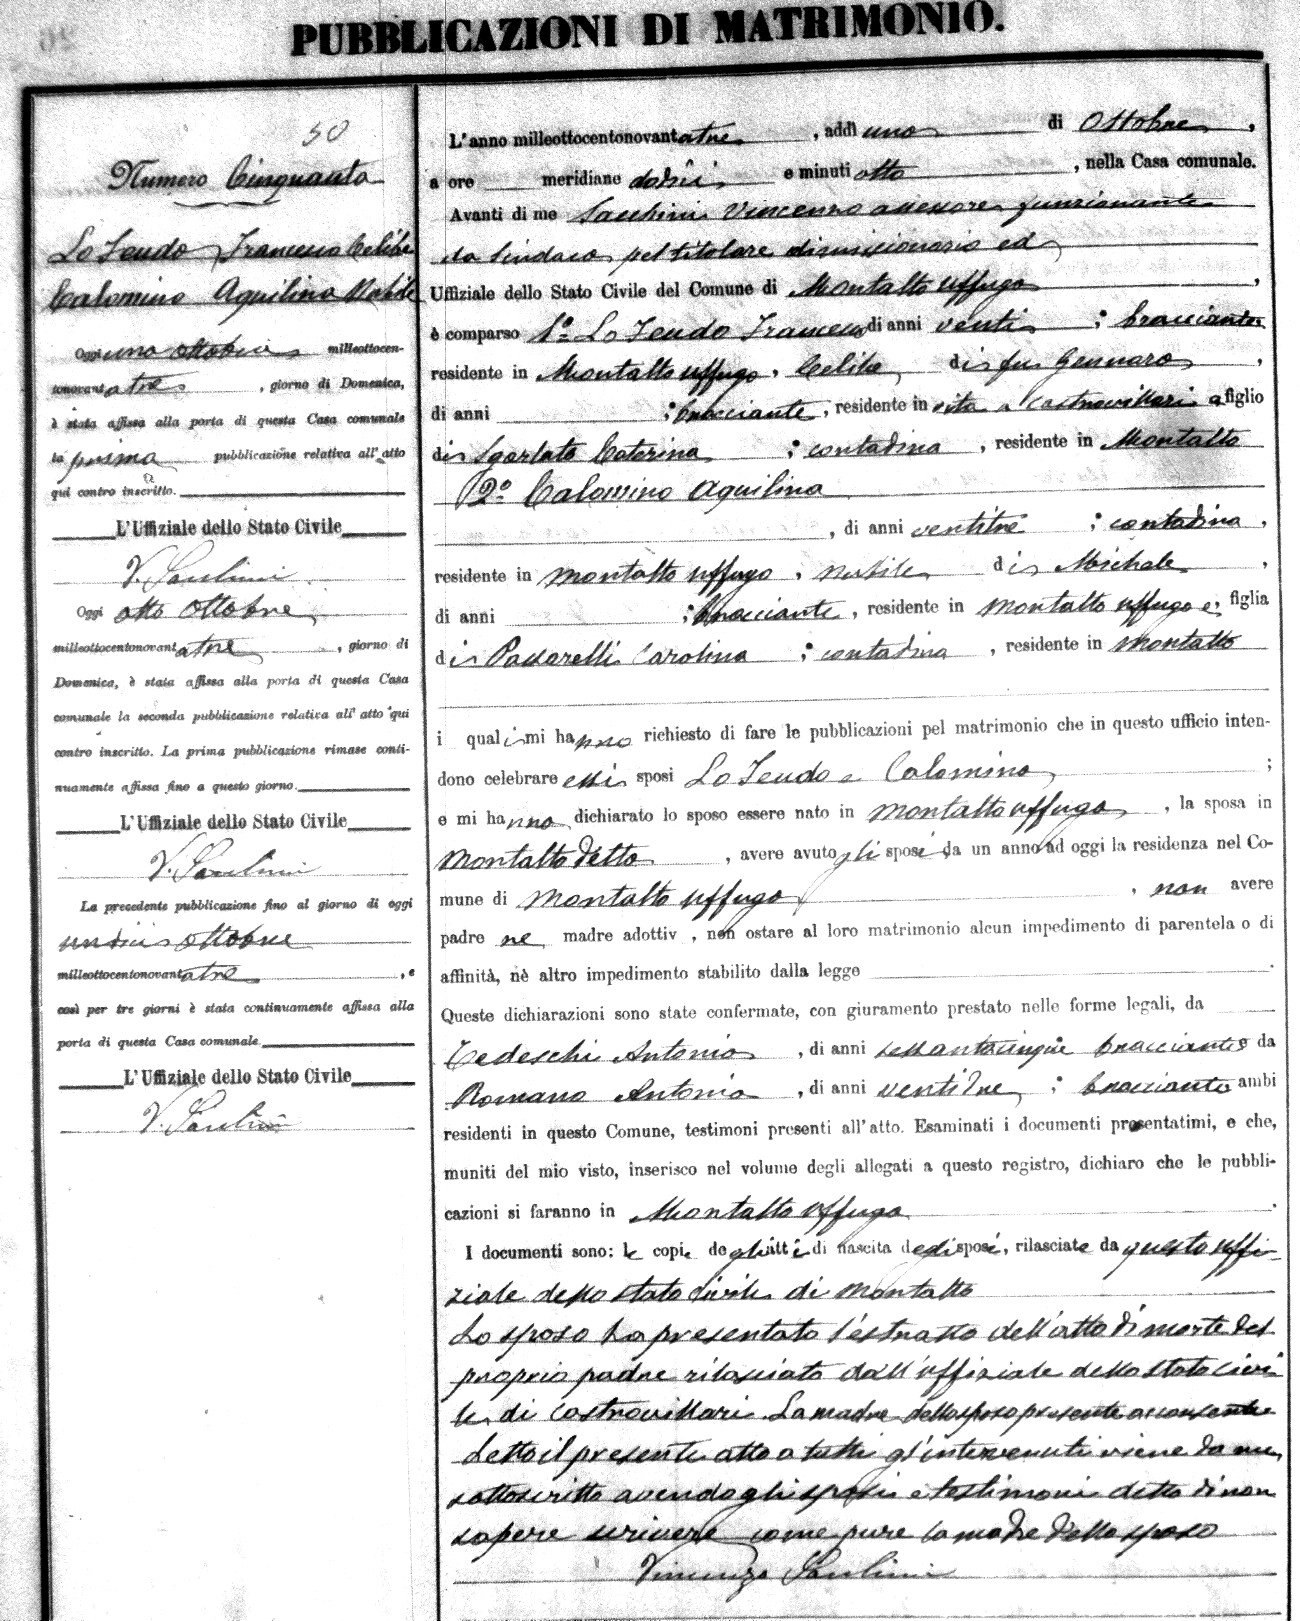 PUBBLICAZIONI DI MATRIMONIO.
50
Numero Cinquanta
Lo Feudo Francesco Celibe
Calomino Aquilina Nubile
Oggi uno ottobre milleottocen-
tonovantatre, giorno di Domenica,
è stata affissa alla porta di questa Casa comunale
la prima pubblicazione relativa all'atto
qui contro inscritto.
L'Uffiziale dello Stato Civile
Oggi otto ottobre
milleottocentonovantatre, giorno di
Domenica, è stata affissa alla porta di questa Casa
comunale la seconda pubblicazione relativa all'atto qui
contro inscritto. La prima pubblicazione rimase conti-
nuamente affissa fino a questo giorno.
L'Uffiziale dello Stato Civile
La precedente pubblicazione fino al giorno di oggi
undici ottobre
milleottocentonovantatre, e
così per tre giorni è stata continuamente affissa alla
porta di questa Casa comunale.
L'Uffiziale dello Stato Civile
L'anno milleottocentonovantatre, addì uno di Ottobre,
a ore meridiane dodici e minuti otto, nella Casa comunale.
Avanti di me Vincenzo assessore funzionante
da Sindaco pel titolare dimissionario ed
Uffiziale dello Stato Civile del Comune di Montalto Uffugo,
è comparso 1° Lo Feudo Francesco di anni venti; bracciante
residente in Montalto Uffugo, Celibe, di fu Gennaro,
di anni ; bracciante, residente in vita a Castrovillari e figlio
di Sgarlato Caterina; contadina, residente in Montalto
2° Calomino Aquilina
, di anni ventitre; contadina,
residente in Montalto Uffugo, nubile di Michele,
di anni ; bracciante, residente in Montalto Uffugo e, figlia
di Passarelli Carolina; contadina, residente in Montalto
i quali mi hanno richiesto di fare le pubblicazioni pel matrimonio che in questo ufficio inten-
dono celebrare essi sposi Lo Feudo e Calomino;
e mi hanno dichiarato lo sposo essere nato in Montalto Uffugo, la sposa in
Montalto detto, avere avuto gli sposi da un anno ad oggi la residenza nel Co-
mune di Montalto Uffugo, non avere
padre ne madre adottiv , non ostare al loro matrimonio alcun impedimento di parentela o di
affinità, nè altro impedimento stabilito dalla legge.
Queste dichiarazioni sono state confermate, con giuramento prestato nelle forme legali, da
Tedeschi Antonio, di anni sessantacinque bracciante e da
Romano Antonio, di anni ventidue; bracciante ambi
residenti in questo Comune, testimoni presenti all'atto. Esaminati i documenti presentatimi, e che,
muniti del mio visto, inserisco nel volume degli allegati a questo registro, dichiaro che le pubbli-
cazioni si faranno in Montalto Uffugo.
I documenti sono: le copie degli atti di nascita degli sposi, rilasciate da questo uffi-
ziale dello stato civile di Montalto
Lo sposo ha presentato l'estratto dell'atto di morte del
proprio padre rilasciato dall'uffiziale dello stato civi
le di Castrovillari La madre dello sposo presente acconsente
Letto il presente atto a tutti gl'intervenuti viene da me
sottoscritto avendo gli sposi e testimoni detto di non
sapere scrivere come pure la madre dello sposo
Vincenzo